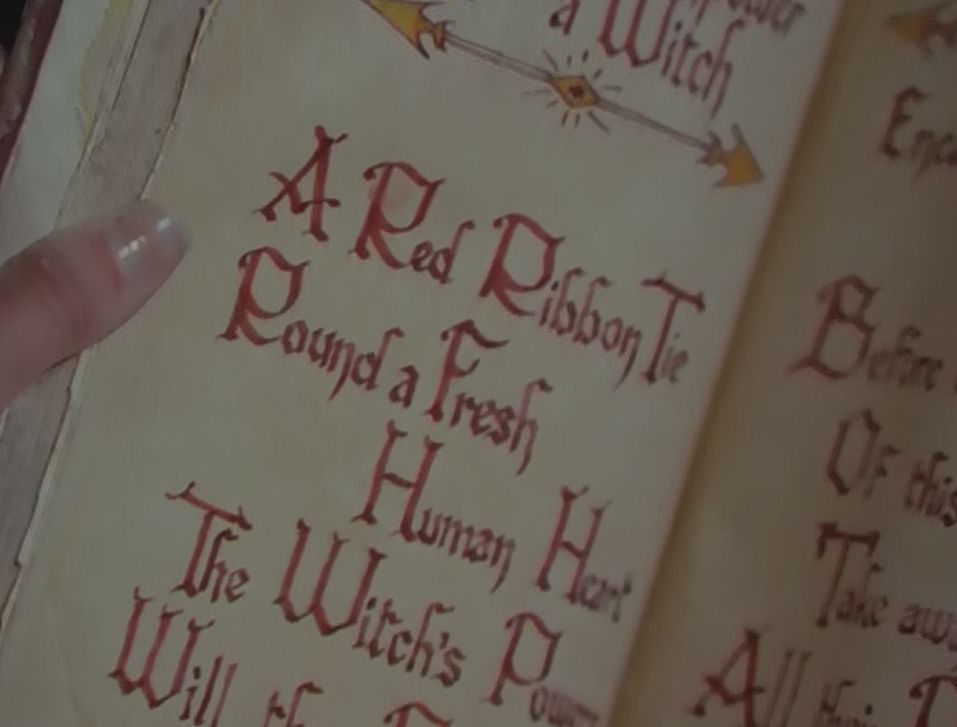 a Witch
A Red Ribbon Tie
Round a Fresh
Human Heart
The Witch's Power
Will
Before
Of this
Take
All